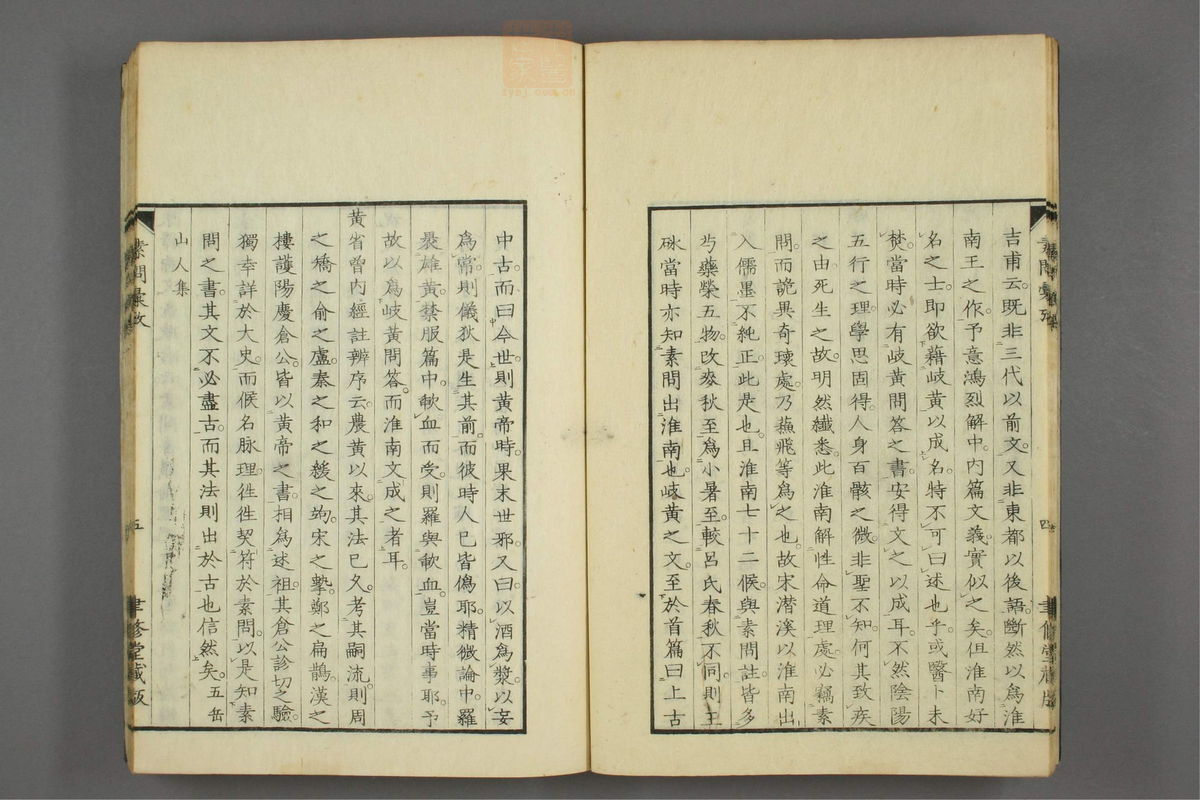 吉甫云既非三代以前文又非東都以後語斷然以爲淮
南王之作予意鴻烈解中内篇文義實似之矣但淮南好
名之士即欲藉岐黄以成名特不可曰述也乎或醫卜未
焚當時必有岐黄問答之書安得文之以成耳不然陰陽
五行之理學思固得人身百骸之微非聖不知何其致疾
之由死生之故明然纖悉此淮南解性命道理處必竊素
問而詭異奇瓌處乃蘓飛等爲之也故宋潜溪以淮南出
入儒墨不純正此是也且淮南七十二候與素問註皆多
芍藥榮五物改麥秋至爲小暑至較呂氏春秋不同則王
氷當時亦知素問出淮南也岐黄之文至於首篇曰上古
四
聿修堂藏版
中古而曰今世則黄帝時果末世邪又曰以酒爲漿以妄
爲常則儀狄是生其前而彼時人已皆僞耶精微論中羅
褁雄黄禁服篇中歃血而受則羅與歃血豈當時事耶予
故以爲岐黄問答而淮南文成之者耳
黄省曾内經註辨序云農黄以來其法已久考其嗣流則周
之矯之俞之盧秦之和之緩之竘宋之摯鄭之扁鵲漢之
樓護陽慶倉公皆以黄帝之書相爲述祖其倉公診切之驗
獨幸詳於大史而候名脉理徃徃契符於素問以是知素
問之書其文不必盡古而其法則出於古也信然矣五岳
山人集
素問彙攷
五
聿修堂藏版